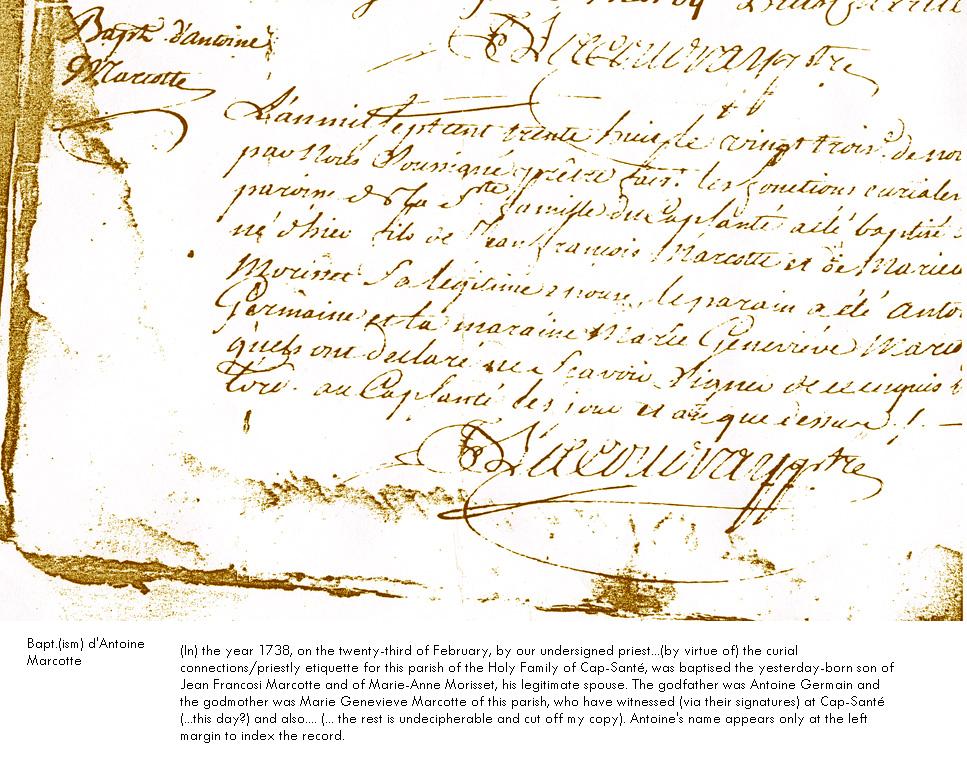 Bapt. d'antoine
Marcotte
ptre
L'an mil sept cent trente huit le vingt trois e. de
par Nous Soussigné prêtre fais. les fonctions curiales
paroisse de la Ste famille du Cap santé a été baptisé
né d'hier fils de Jean françois Marcotte et de Marie
Morisset Sa légitime epouse, le parain a été antoi
Germaine et la maraine Marie Geneviéve Marco
quels ont declaré ne Scavoir Signer de ce enquis
au Cap santé les jour et an que dessus
ptre
Bapt.(ism) d'Antoine
Marcotte
(In) the year 1738, on the twenty-third of February, by our undersigned priest...(by virtue of) the curial
connections/priestly etiquette for this parish of the Holy Family of Cap-Santé, was baptised the yesterday-born son of
Jean Francosi Marcotte and of Marie-Anne Morisset, his legitimate spouse. The godfather was Antoine Germain and
the godmother was Marie Genevieve Marcotte of this parish, who have witnessed (via their signatures) at Cap-Santé
(...this day?) and also.... (... the rest is undecipherable and cut off my copy). Antoine's name appears only at the left
margin to index the record.